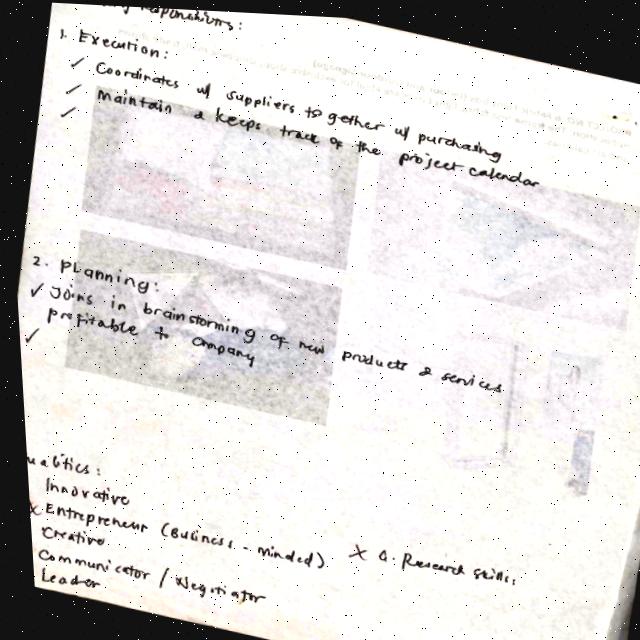 Responsibilities:
1. Execution:
✓ Coordinates w/ suppliers together w/ purchasing
✓ Maintain & keeps track of the project calendar
✓
2. Planning:
✓ Joins in brainstorming of new products & services
profitable to company
✓
ualities:
Innovative
x Entrepreneur (Business - minded) x a. Research skills.
Creative
Communicator / Negotiator
Leader